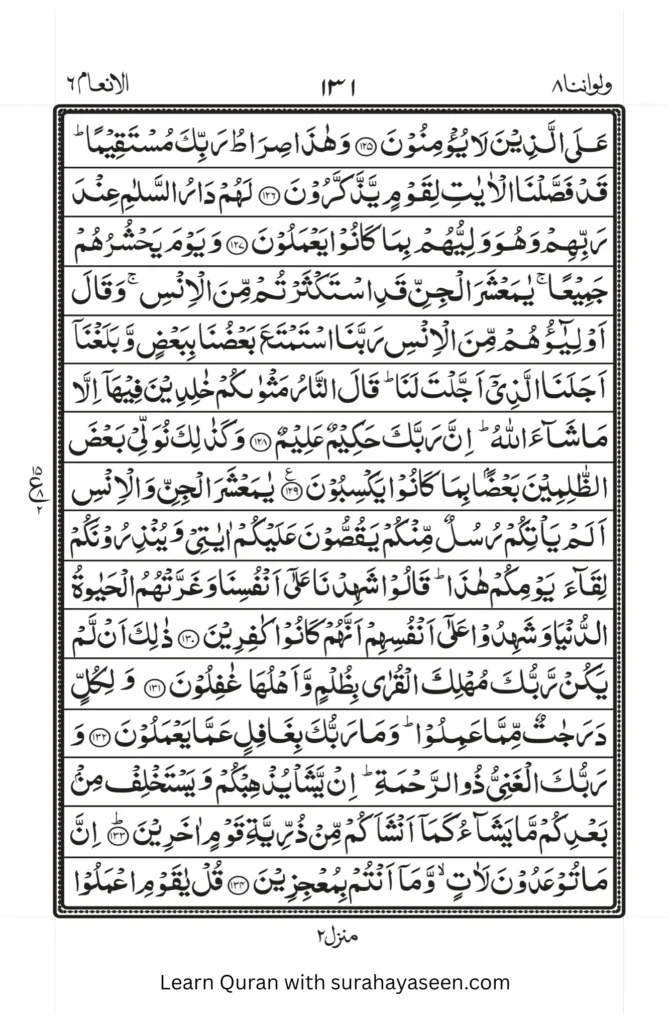 ولواننا٨ ١٣١ الانعام٦
عَلَى الَّذِيۡنَ لَا يُؤۡمِنُوۡنَ ﴿۱۲۵﴾ وَهٰذَا صِرَاطُ رَبِّكَ مُسۡتَقِيۡمًا ؕ
قَدۡ فَصَّلۡنَا الۡاٰيٰتِ لِقَوۡمٍ يَّذَّكَّرُوۡنَ ﴿۱۲۶﴾ لَهُمۡ دَارُ السَّلٰمِ عِنۡدَ
رَبِّهِمۡ وَهُوَ وَلِيُّهُمۡ بِمَا كَانُوۡا يَعۡمَلُوۡنَ ﴿۱۲۷﴾ وَيَوۡمَ يَحۡشُرُهُمۡ
جَمِيۡعًا ۚ يٰمَعۡشَرَ الۡجِنِّ قَدِ اسۡتَكۡثَرۡتُمۡ مِّنَ الۡاِنۡسِ ۚ وَقَالَ
اَوۡلِيٰٓـؤُهُمۡ مِّنَ الۡاِنۡسِ رَبَّنَا اسۡتَمۡتَعَ بَعۡضُنَا بِبَعۡضٍ وَّبَلَغۡنَاۤ
اَجَلَنَا الَّذِىۡۤ اَجَّلۡتَ لَنَا ؕ قَالَ النَّارُ مَثۡوٰٮكُمۡ خٰلِدِيۡنَ فِيۡهَاۤ اِلَّا
مَا شَآءَ اللّٰهُ ؕ اِنَّ رَبَّكَ حَكِيۡمٌ عَلِيۡمٌ ﴿۱۲۸﴾ وَكَذٰلِكَ نُوَلِّىۡ بَعۡضَ
الظّٰلِمِيۡنَ بَعۡضًۢا بِمَا كَانُوۡا يَكۡسِبُوۡنَ ﴿۱۲۹﴾ ع يٰمَعۡشَرَ الۡجِنِّ وَالۡاِنۡسِ
١٥ ع ٨ ٢
اَلَمۡ يَاۡتِكُمۡ رُسُلٌ مِّنۡكُمۡ يَقُصُّوۡنَ عَلَيۡكُمۡ اٰيٰتِىۡ وَيُنۡذِرُوۡنَكُمۡ
لِقَآءَ يَوۡمِكُمۡ هٰذَا ؕ قَالُوۡا شَهِدۡنَا عَلٰٓى اَنۡفُسِنَا وَغَرَّتۡهُمُ الۡحَيٰوةُ
الدُّنۡيَا وَشَهِدُوۡا عَلٰٓى اَنۡفُسِهِمۡ اَنَّهُمۡ كَانُوۡا كٰفِرِيۡنَ ﴿۱۳۰﴾ ذٰلِكَ اَنۡ لَّمۡ
يَكُنۡ رَّبُّكَ مُهۡلِكَ الۡقُرٰى بِظُلۡمٍ وَّاَهۡلُهَا غٰفِلُوۡنَ ﴿۱۳۱﴾ وَلِكُلٍّ
دَرَجٰتٌ مِّمَّا عَمِلُوۡا ؕ وَمَا رَبُّكَ بِغَافِلٍ عَمَّا يَعۡمَلُوۡنَ ﴿۱۳۲﴾ وَ
رَبُّكَ الۡغَنِىُّ ذُو الرَّحۡمَةِ ؕ اِنۡ يَّشَاۡ يُذۡهِبۡكُمۡ وَيَسۡتَخۡلِفۡ مِنۡۢ
بَعۡدِكُمۡ مَّا يَشَآءُ كَمَاۤ اَنۡشَاَكُمۡ مِّنۡ ذُرِّيَّةِ قَوۡمٍ اٰخَرِيۡنَ ؕ ﴿۱۳۳﴾ اِنَّ
مَا تُوۡعَدُوۡنَ لَاٰتٍ ۙ وَّمَاۤ اَنۡتُمۡ بِمُعۡجِزِيۡنَ ﴿۱۳۴﴾ قُلۡ يٰقَوۡمِ اعۡمَلُوۡا
منزل٢
Learn Quran with surahayaseen.com